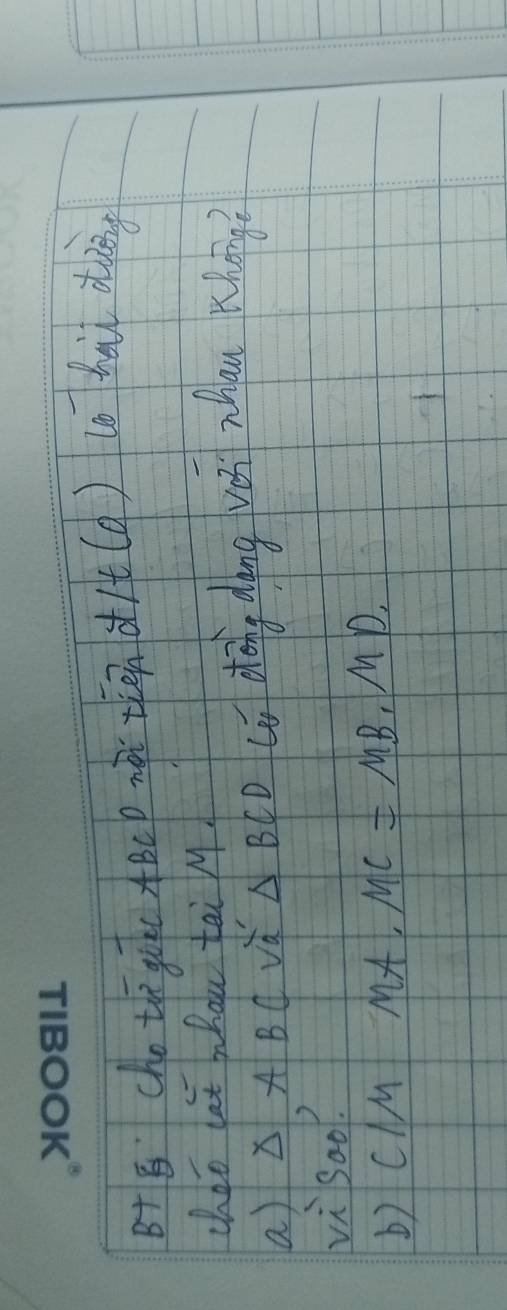 TIBOOK®
BT 5: Cho tứ giác ABCD nội tiếp đ/t (O) có hai đường
chéo cắt nhau tại M.
a) Δ ABC và Δ BCD có đồng dạng với nhau không?
vì sao?
b) C/M MA. MC = MB. MD.